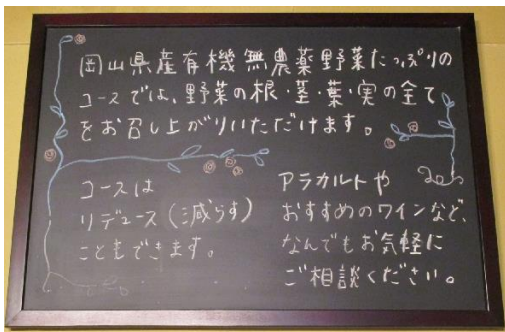 岡山県産有機無農薬野菜たっぷりの
コースでは、野菜の根・茎・葉・実の全て
をお召し上がりいただけます。
コースは
リデュース(減らす)
こともできます。
アラカルトや
おすすめのワインなど、
なんでもお気軽に
ご相談ください。